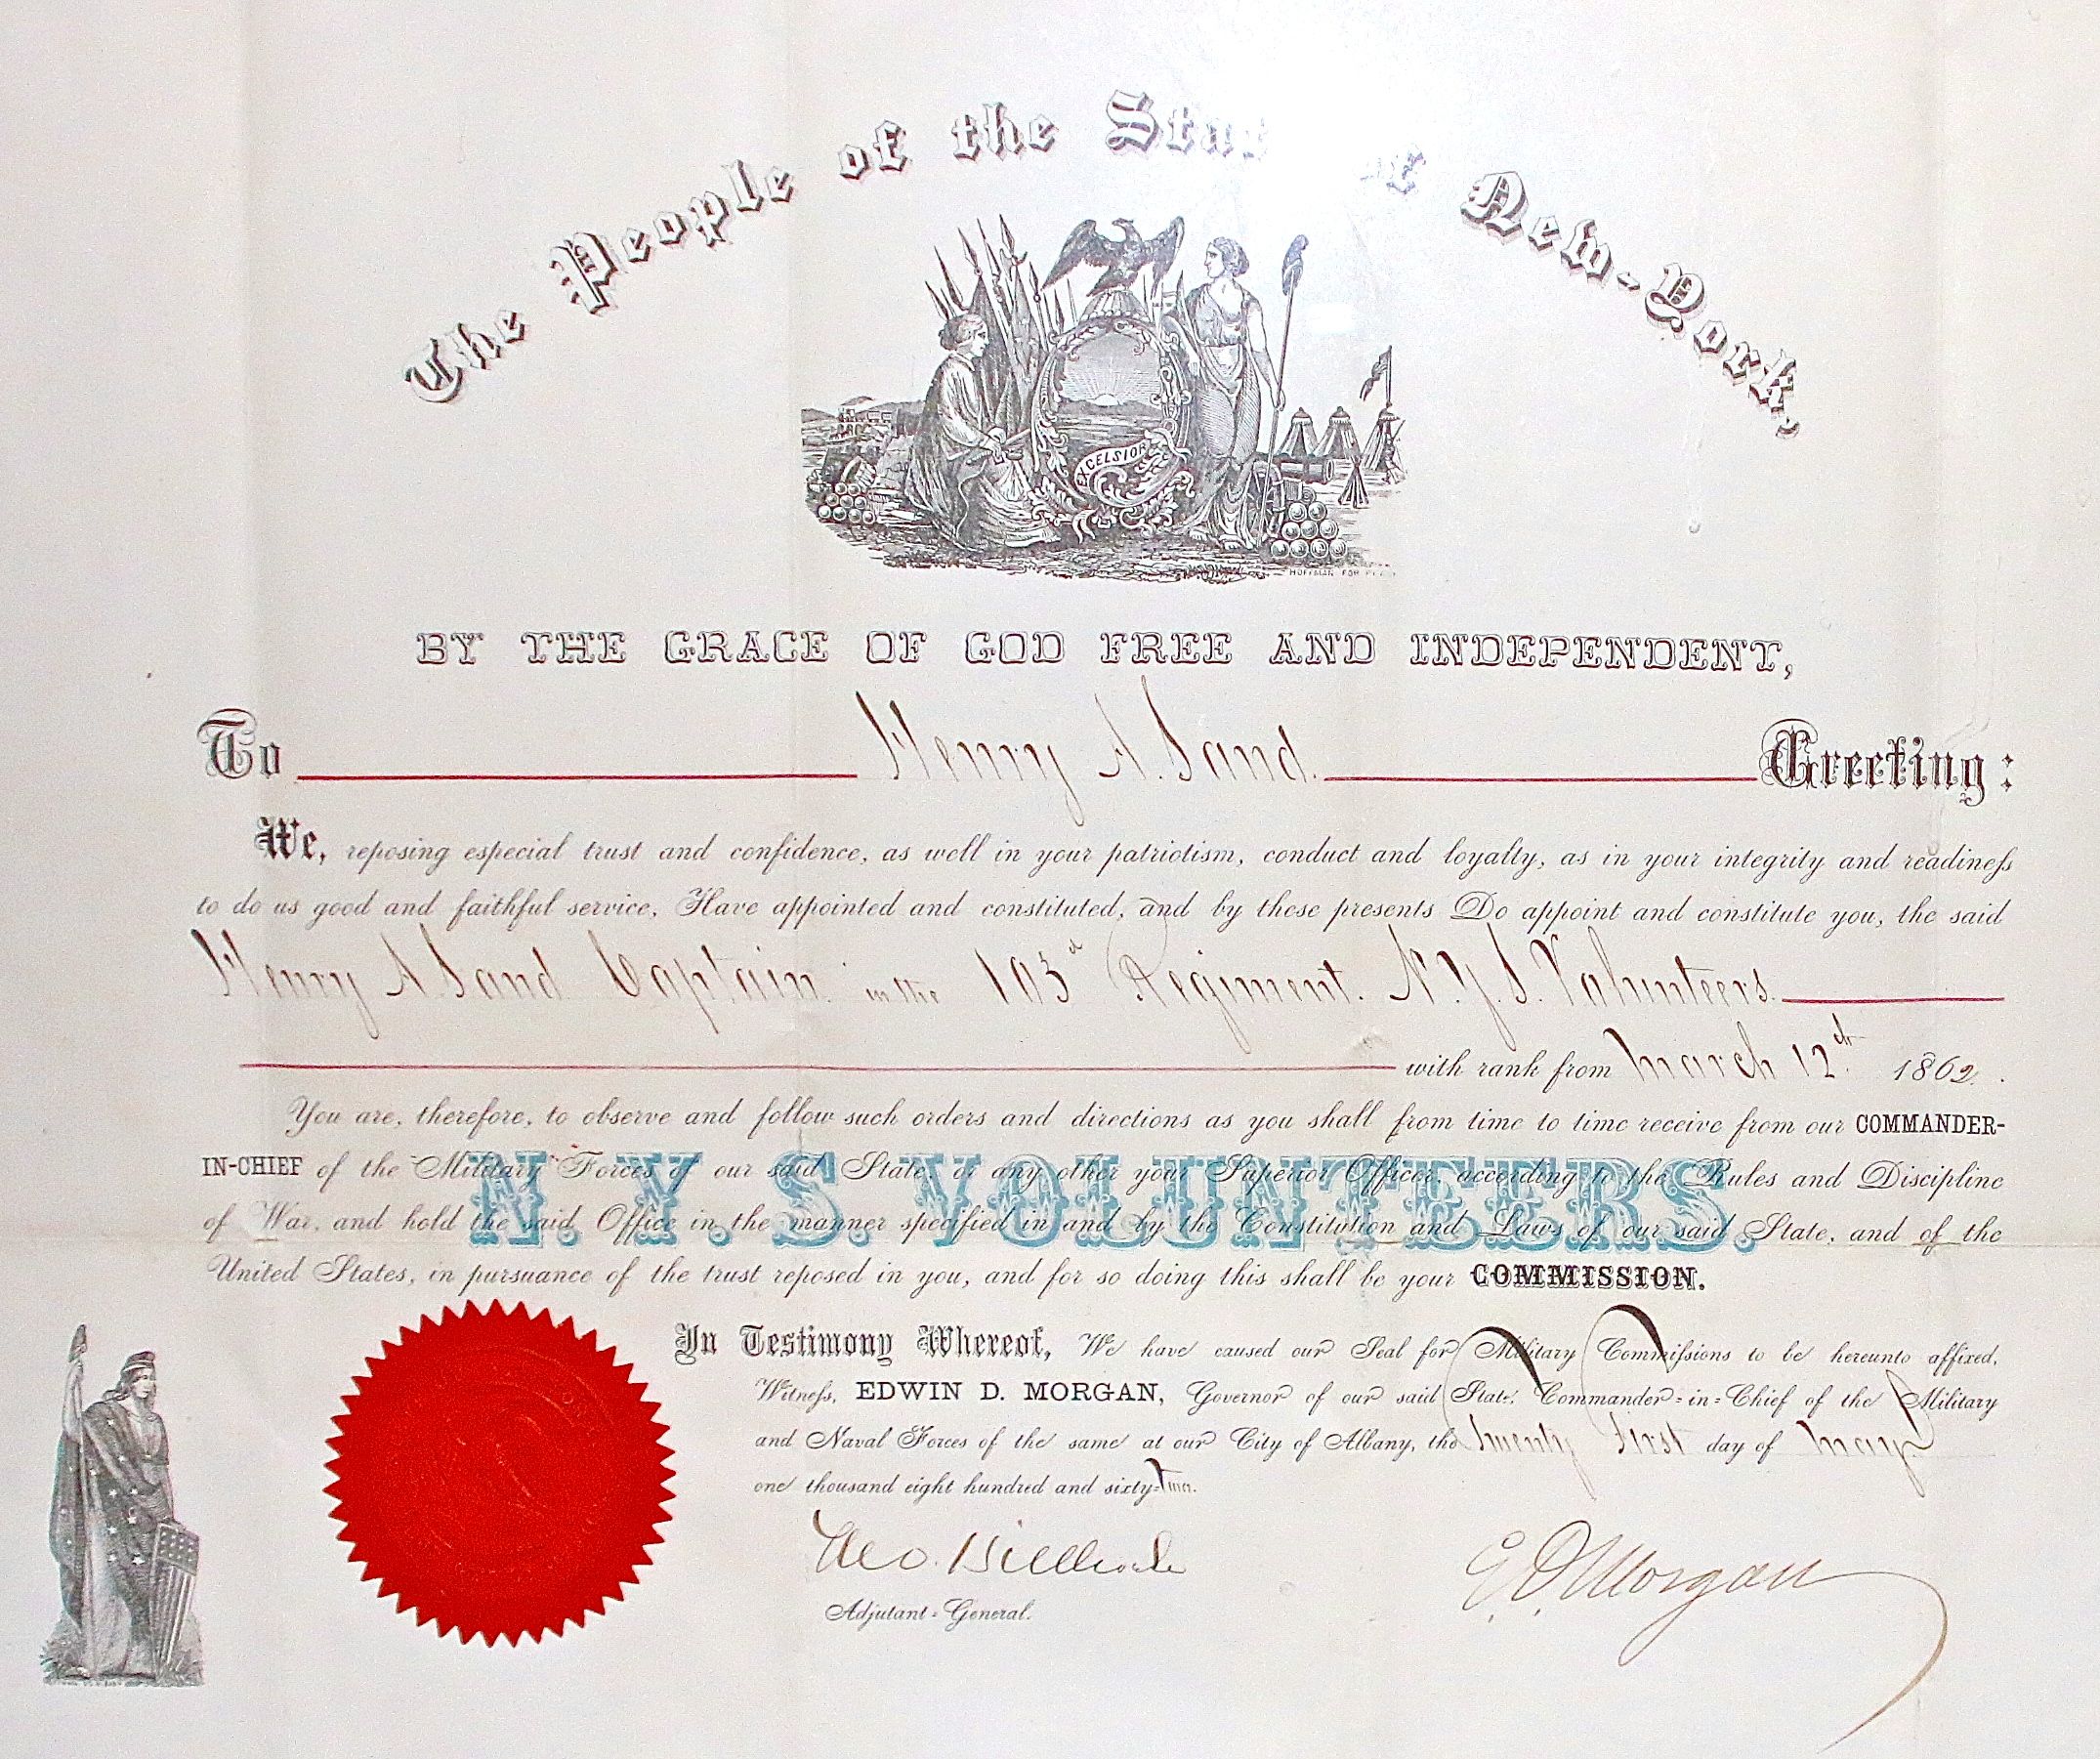 The People of the Stat of New-York,
EXCELSIOR
HOFFMAN FOR
BY THE GRACE OF GOD FREE AND INDEPENDENT,
To Henry A. Sand. Greeting:
We, reposing especial trust and confidence, as well in your patriotism, conduct and loyalty, as in your integrity and readiness
to do us good and faithful service, Have appointed and constituted, and by these presents Do appoint and constitute you, the said
Henry A. Sand Captain in the 103d Regiment. N.Y.S. Volunteers.
with rank from March 12th 1862.
You are, therefore, to observe and follow such orders and directions as you shall from time to time receive from our COMMANDER-
IN-CHIEF of the Military Forces of our said State, or any other your Superior Officer, according to the Rules and Discipline
N.Y.S. VOLUNTEERS.
of War, and hold the said Office in the manner specified in and by the Constitution and Laws of our said State, and of the
United States, in pursuance of the trust reposed in you, and for so doing this shall be your COMMISSION.
In Testimony Whereof, We have caused our Seal for Military Commissions to be hereunto affixed.
Witness, EDWIN D. MORGAN, Governor of our said State, Commander-in-Chief of the Military
and Naval Forces of the same at our City of Albany, the twenty first day of May
one thousand eight hundred and sixty-two.
E.D. Morgan
Adjutant-General.